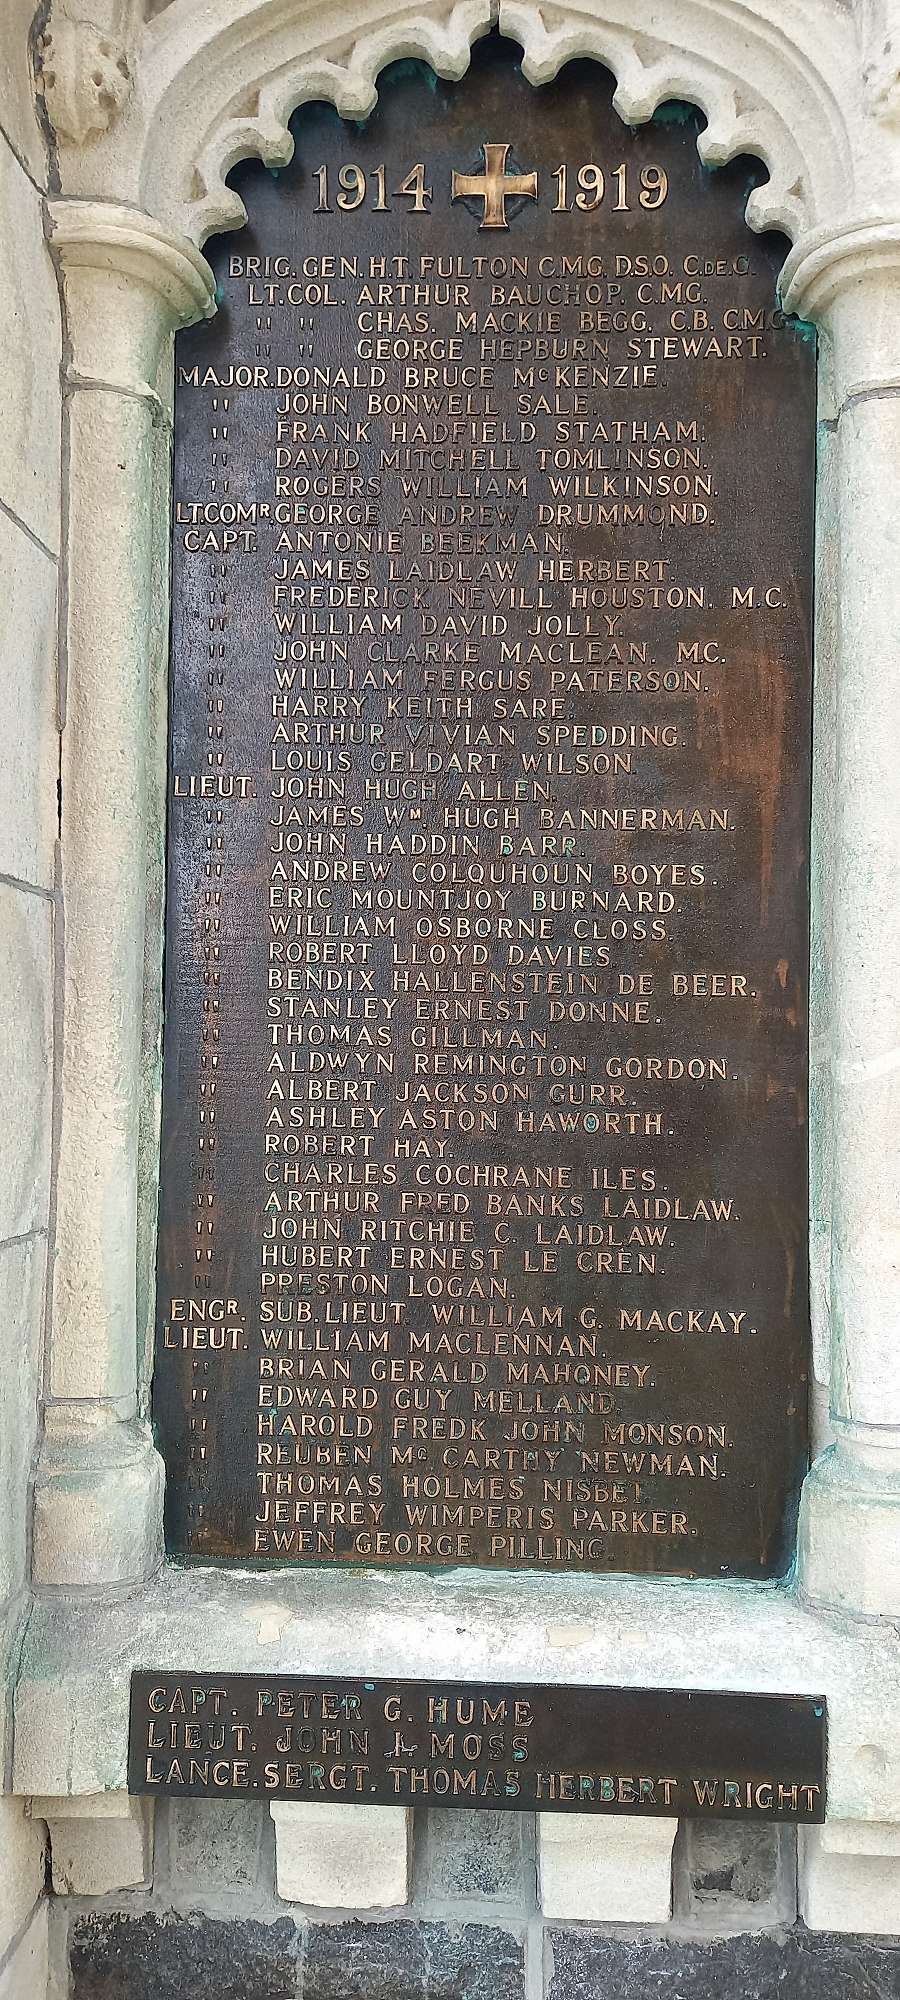 1914 1919
BRIG. GEN. H.T. FULTON C.M.G. D.S.O. C.DE.G.
LT. COL. ARTHUR BAUCHOP. C.M.G.
" " CHAS. MACKIE BEGG. C.B. C.M.G.
" " GEORGE HEPBURN STEWART.
MAJOR. DONALD BRUCE McKENZIE.
" JOHN BONWELL SALE.
" FRANK HADFIELD STATHAM.
" DAVID MITCHELL TOMLINSON.
" ROGERS WILLIAM WILKINSON.
LT.COMR GEORGE ANDREW DRUMMOND.
CAPT. ANTONIE BEEKMAN.
" JAMES LAIDLAW HERBERT.
" FREDERICK NEVILL HOUSTON. M.C.
" WILLIAM DAVID JOLLY.
" JOHN CLARKE MACLEAN. M.C.
" WILLIAM FERGUS PATERSON.
" HARRY KEITH SARE.
" ARTHUR VIVIAN SPEDDING.
" LOUIS GELDART WILSON.
LIEUT. JOHN HUGH ALLEN.
" JAMES WM. HUGH BANNERMAN.
" JOHN HADDIN BARR.
" ANDREW COLQUHOUN BOYES.
" ERIC MOUNTJOY BURNARD.
" WILLIAM OSBORNE CLOSS.
" ROBERT LLOYD DAVIES.
" BENDIX HALLENSTEIN DE BEER.
" STANLEY ERNEST DONNE.
" THOMAS GILLMAN.
" ALDWYN REMINGTON GORDON.
" ALBERT JACKSON GURR.
" ASHLEY ASTON HAWORTH.
" ROBERT HAY.
" CHARLES COCHRANE ILES.
" ARTHUR FRED BANKS LAIDLAW.
" JOHN RITCHIE C. LAIDLAW.
" HUBERT ERNEST LE CREN.
" PRESTON LOGAN.
ENGR. SUB. LIEUT. WILLIAM G. MACKAY.
LIEUT. WILLIAM MACLENNAN.
" BRIAN GERALD MAHONEY.
" EDWARD GUY MELLAND.
" HAROLD FREDK JOHN MONSON.
" REUBEN McCARTHY NEWMAN.
" THOMAS HOLMES NISBET.
" JEFFREY WIMPERIS PARKER.
" EWEN GEORGE PILLING.
CAPT. PETER G. HUME
LIEUT. JOHN L MOSS
LANCE. SERGT. THOMAS HERBERT WRIGHT